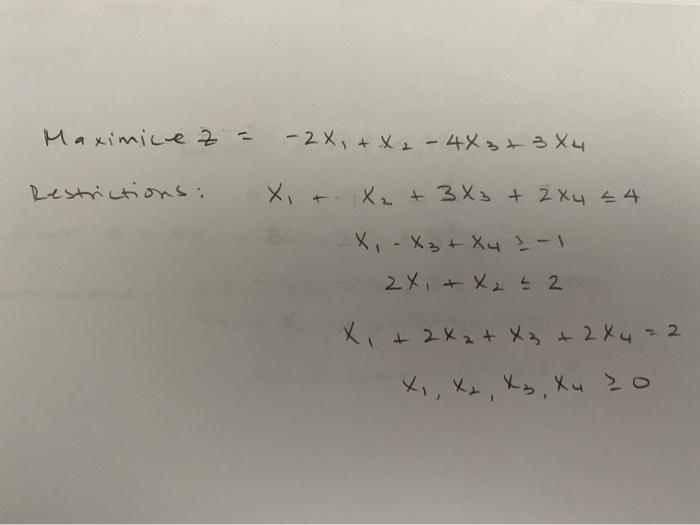 Maximice Z = -2X₁ + X₂ - 4X₃ + 3X₄
Restrictions: X₁ + X₂ + 3X₃ + 2X₄ ≤ 4
X₁ - X₃ + X₄ ≥ -1
2X₁ + X₂ ≤ 2
X₁ + 2X₂ + X₃ + 2X₄ = 2
X₁, X₂, X₃, X₄ ≥ 0